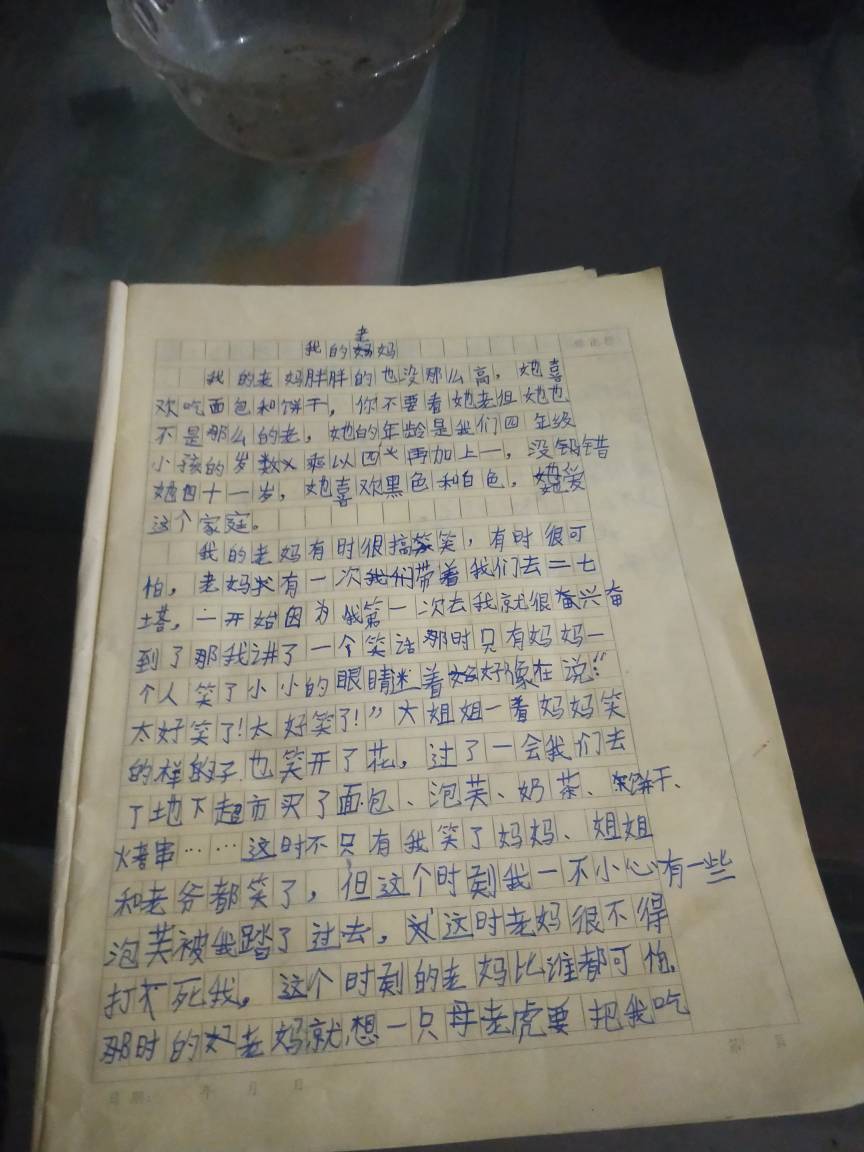 我的老妈
我的老妈胖胖的也没那么高，她喜
欢吃面包和饼干，你不要看她老但她也
不是那么的老，她的年龄是我们四年级
小孩的岁数乘以四再加上一，没错
她四十一岁，她喜欢黑色和白色，她爱
这个家庭。
我的老妈有时很搞笑，有时很可
怕，老妈有一次带着我们去二七
塔，一开始因为我第一次去我就很兴奋
到了那我讲了一个笑话那时只有妈妈一
个人笑了小小的眼睛迷着好像在说：“
太好笑了！太好笑了！”大姐姐一看妈妈笑
的样子也笑开了花，过了一会我们去
了地下超市买了面包、泡芙、奶茶、饼干、
烤串……这时不只有我笑了妈妈、姐姐
和老爷都笑了，但这个时刻我一不小心有一些
泡芙被我踏了过去，这时老妈很不得
打死我。这个时刻的老妈比谁都可怕，
那时的老妈就想一只母老虎要把我吃
日期： 年 月 日